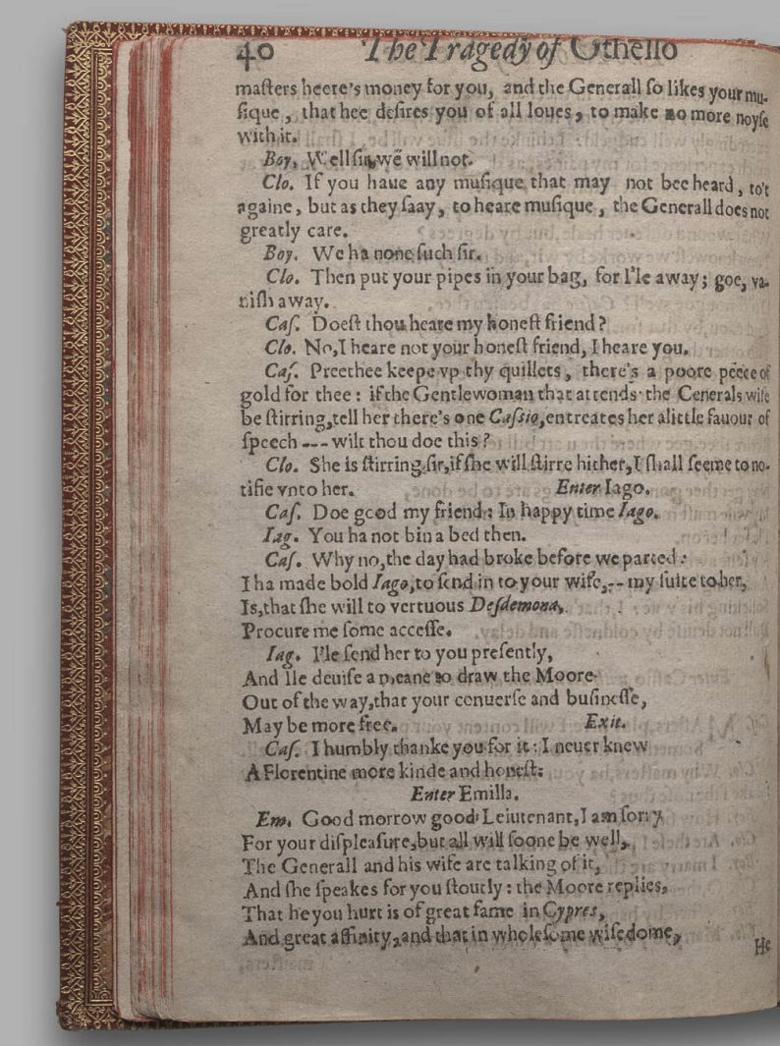 40 The Tragedy of Othello
maſters heere's money for you, and the Generall ſo likes your mu-
ſique, that hee deſires you of all loues, to make no more noyſe
with it.
Boy, Well ſir, we will not.
Clo. If you haue any muſique that may not bee heard, to't
againe, but as they ſaay, to heare muſique, the Generall does not
greatly care.
Boy. We ha none ſuch ſir.
Clo. Then put your pipes in your bag, for I'le away; goe, va-
niſh away.
Caſ. Doeſt thou heare my honeſt friend?
Clo. No, I heare not your honeſt friend, I heare you.
Caſ. Preethee keepe vp thy quillets, there's a poore peece of
gold for thee: if the Gentlewoman that attends the Cenerals wife
be ſtirring, tell her there's one Caſsio, entreates her a little fauour of
ſpeech --- wilt thou doe this?
Clo. She is ſtirring ſir, if ſhe will ſtirre hither, I ſhall ſeeme to no-
tifie vnto her. Enter Iago.
Caſ. Doe good my friend: In happy time Iago.
Iag. You ha not bin a bed then.
Caſ. Why no, the day had broke before we parted:
I ha made bold Iago, to ſend in to your wife, -- my ſuite to her,
Is, that ſhe will to vertuous Deſdemona,
Procure me ſome acceſſe.
Iag. I'le ſend her to you preſently,
And Ile deuiſe a meane to draw the Moore
Out of the way, that your conuerſe and buſineſſe,
May be more free. Exit.
Caſ. I humbly thanke you for it: I neuer knew
A Florentine more kinde and honeſt:
Enter Emilla.
Em. Good morrow good Leiutenant, I am ſorry
For your diſpleaſure, but all will ſoone be well,
The Generall and his wife are talking of it,
And ſhe ſpeakes for you ſtoutly: the Moore replies,
That he you hurt is of great fame in Cypres,
And great affinity, and that in wholeſome wiſedome,
He